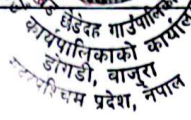 छेडेदह गाउँपालिका
कार्यपालिकाको कार्यालय
डोगडी, बाजुरा
सुदूरपश्चिम प्रदेश, नेपाल